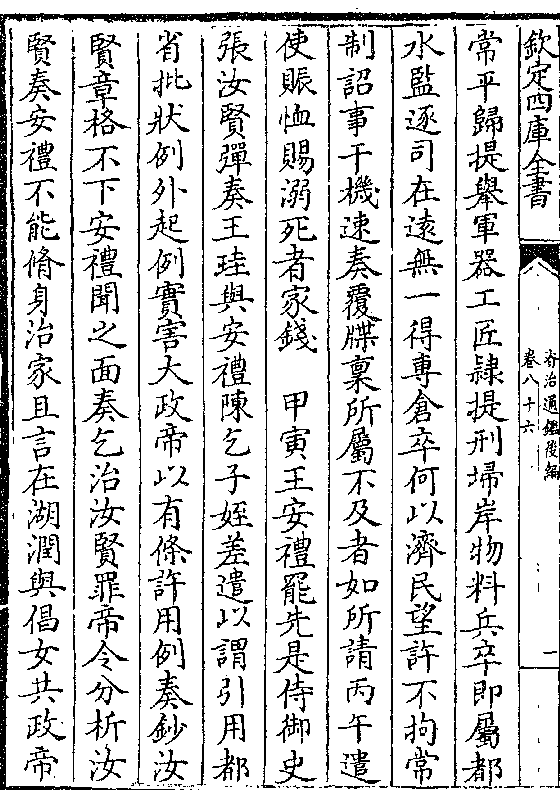 欽定四庫全書
資治通鑑後編
卷八十六
一
常平歸提舉軍器工匠隸提刑埽岸物料兵卒即屬都
水監逐司在遠無一得專倉卒何以濟民望許不拘常
制詔事干機速奏覆牒稟所屬不及者如所請丙午遣
使賑恤賜溺死者家錢　甲寅王安禮罷先是侍御史
張汝賢彈奏王珪與安禮陳乞子姪差遣以謂引用都
省批狀例外起例實害大政帝以有條許用例奏鈔汝
賢章格不下安禮聞之面奏乞治汝賢罪帝令分析汝
賢奏安禮不能脩身治家且言在湖潤與倡女共政帝